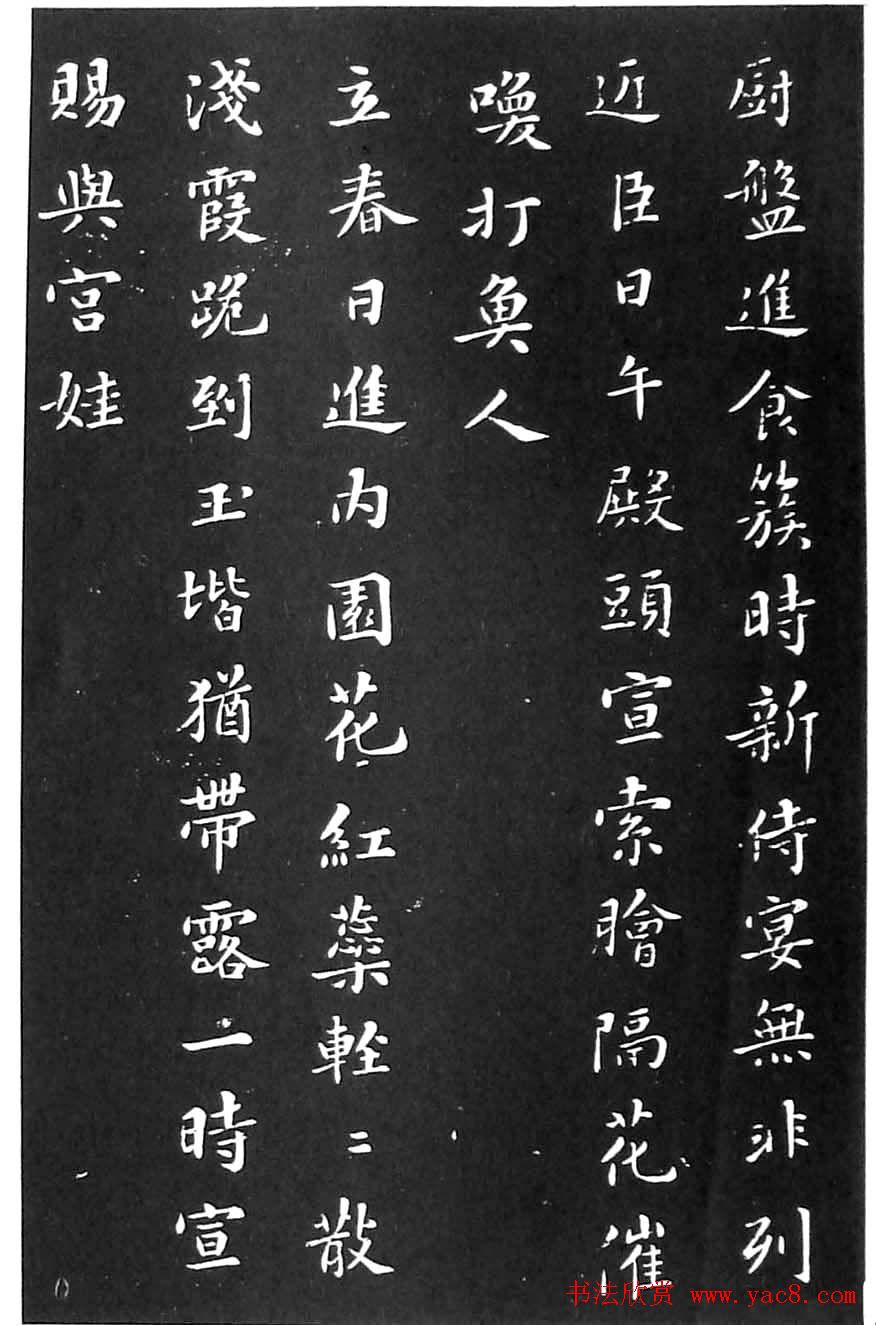 廚盤進食簇時新侍宴無非列
近臣日午殿頭宣索膾隔花催
喚打魚人
立春日進內園花紅蘂輕〻散
淺霞跪到玉堦猶帶露一時宣
賜與宮娃
书法欣赏 www.yac8.com